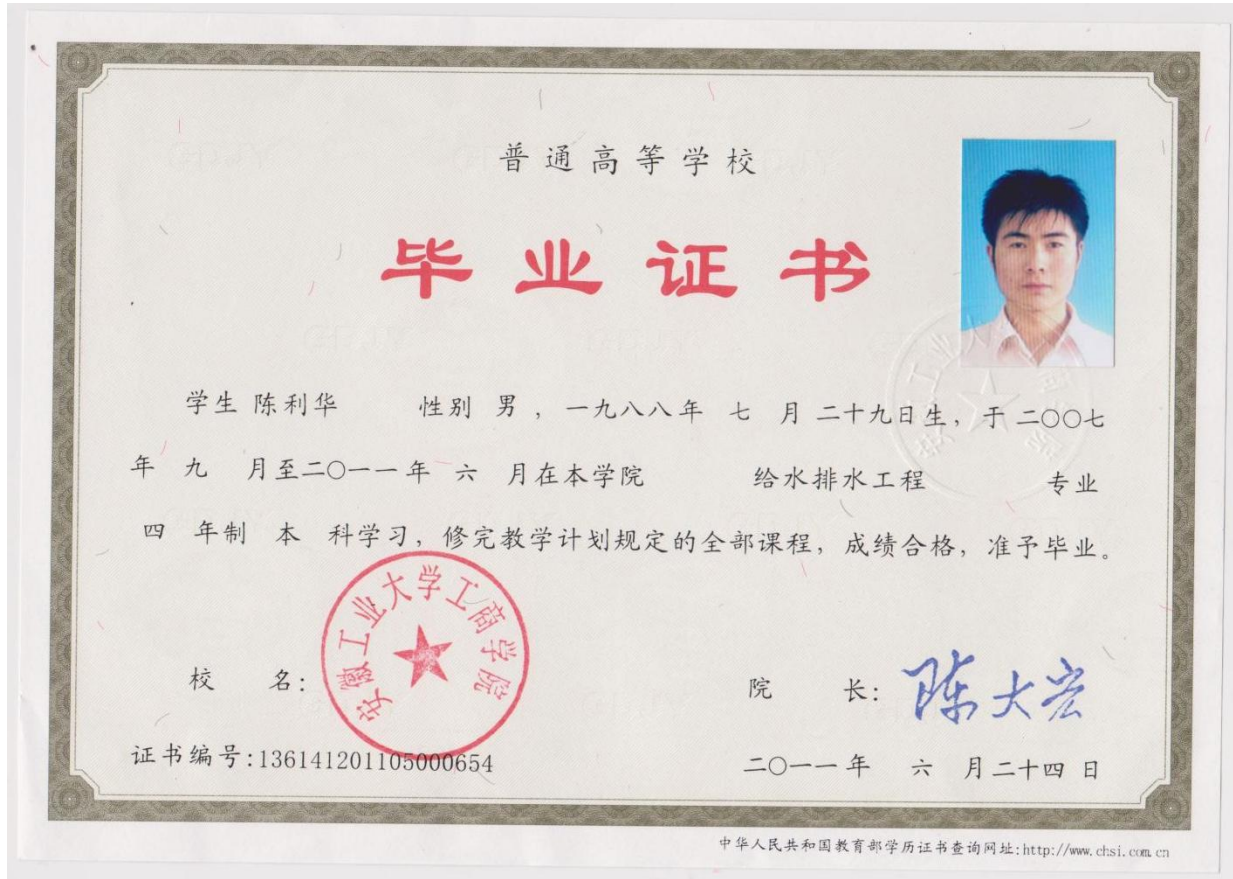 普通高等学校
毕业证书
学生 陈利华 性别 男 ，一九八八年 七 月 二十九日生，于 二〇〇七
年 九 月至二〇一一年 六 月在本学院 给水排水工程 专业
四 年制 本 科学习，修完教学计划规定的全部课程，成绩合格，准予毕业。
安徽工业大学工商学院
校 名：
院 长：陈大宏
证书编号:136141201105000654
二〇一一年 六 月二十四日
中华人民共和国教育部学历证书查询网址:http://www.chsi.com.cn